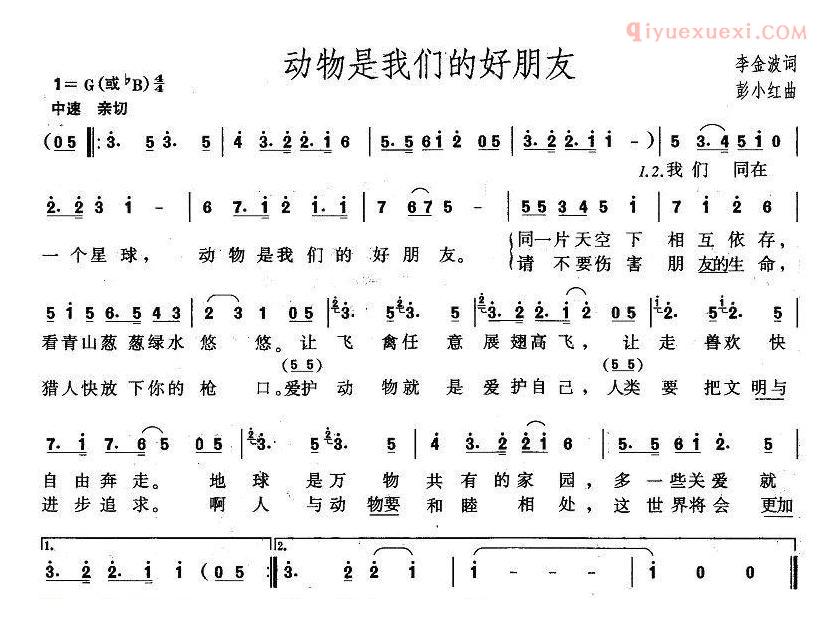 qiyuexuexi.com
动物是我们的好朋友
1=G(或♭B)4/4
李金波词
中速 亲切
彭小红曲
(05 ‖:3. 5 3. 5 | 4 3. 2 2. 1 6 | 5. 5 6 1 2 05 | 3. 2 2. 1 1 - ) | 5 3. 4 5 1 0 |
1.2.我 们 同在
2. 2 3 1 - | 6 7. 1 2 1. 1 | 7 6 7 5 - | 5 5 3 4 5 5 1 | 7 1 2 6 |
一个星球， 动物是我们的好朋友。 同一片天空下相互依存，
请不要伤害朋友的生命，
5 1 5 6. 5 4 3 | 2 3 1 05 | 3. 5 3. 5 | 3. 2 2. 1 2 05 | 2. 5 2. 5 |
看青山葱葱绿水悠悠。让飞禽任意展翅高飞，让走兽欢快
(5 5) (5 5)
猎人快放下你的枪口。爱护动物就是爱护自己，人类要把文明与
7. 1 7. 6 5 05 | 3. 5 3. 5 | 4 3. 2 2 1 6 | 5. 5 6 1 2. 5 |
自由奔走。地球是万物共有的家园，多一些关爱就
进步追求。啊人与动物要和睦相处，这世界将会更加
1. 2.
3. 2 2. 1 1 (05) :‖ 3. 2 2 1 | 1 - - - | 1 0 0 ‖